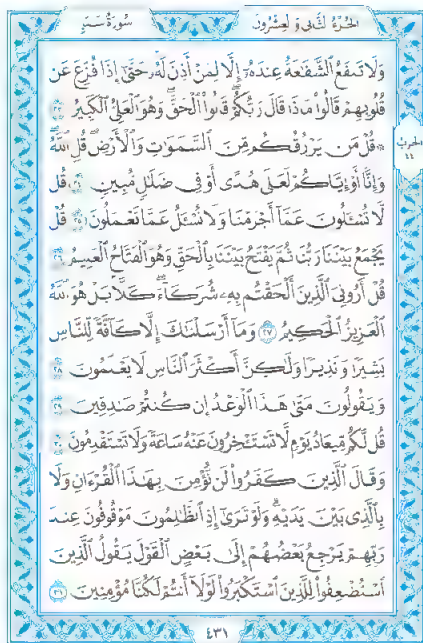 سُورَةُ سَبَإٍ
الجُزْءُ الثَّانِي وَالعِشْرُونَ
وَلَا تَنفَعُ ٱلشَّفَٰعَةُ عِندَهُۥٓ إِلَّا لِمَنْ أَذِنَ لَهُۥ حَتَّىٰٓ إِذَا فُزِّعَ عَن
قُلُوبِهِمْ قَالُوا۟ مَاذَا قَالَ رَبُّكُمْ قَالُوا۟ ٱلْحَقَّ وَهُوَ ٱلْعَلِىُّ ٱلْكَبِيرُ ٢٣
۞ قُلْ مَن يَرْزُقُكُم مِّنَ ٱلسَّمَٰوَٰتِ وَٱلْأَرْضِ قُلِ ٱللَّهُ
وَإِنَّآ أَوْ إِيَّاكُمْ لَعَلَىٰ هُدًى أَوْ فِى ضَلَٰلٍ مُّبِينٍ ٢٤ قُل
لَّا تُسْـَٔلُونَ عَمَّآ أَجْرَمْنَا وَلَا نُسْـَٔلُ عَمَّا تَعْمَلُونَ ٢٥ قُلْ
يَجْمَعُ بَيْنَنَا رَبُّنَا ثُمَّ يَفْتَحُ بَيْنَنَا بِٱلْحَقِّ وَهُوَ ٱلْفَتَّاحُ ٱلْعَلِيمُ ٢٦
قُلْ أَرُونِىَ ٱلَّذِينَ أَلْحَقْتُم بِهِۦ شُرَكَآءَ كَلَّا بَلْ هُوَ ٱللَّهُ
ٱلْعَزِيزُ ٱلْحَكِيمُ ٢٧ وَمَآ أَرْسَلْنَٰكَ إِلَّا كَآفَّةً لِّلنَّاسِ
بَشِيرًا وَنَذِيرًا وَلَٰكِنَّ أَكْثَرَ ٱلنَّاسِ لَا يَعْلَمُونَ ٢٨
وَيَقُولُونَ مَتَىٰ هَٰذَا ٱلْوَعْدُ إِن كُنتُمْ صَٰدِقِينَ ٢٩
قُل لَّكُم مِّيعَادُ يَوْمٍ لَّا تَسْتَـْٔخِرُونَ عَنْهُ سَاعَةً وَلَا تَسْتَقْدِمُونَ ٣٠
وَقَالَ ٱلَّذِينَ كَفَرُوا۟ لَن نُّؤْمِنَ بِهَٰذَا ٱلْقُرْءَانِ وَلَا
بِٱلَّذِى بَيْنَ يَدَيْهِ وَلَوْ تَرَىٰٓ إِذِ ٱلظَّٰلِمُونَ مَوْقُوفُونَ عِندَ
رَبِّهِمْ يَرْجِعُ بَعْضُهُمْ إِلَىٰ بَعْضٍ ٱلْقَوْلَ يَقُولُ ٱلَّذِينَ
ٱسْتُضْعِفُوا۟ لِلَّذِينَ ٱسْتَكْبَرُوا۟ لَوْلَآ أَنتُمْ لَكُنَّا مُؤْمِنِينَ ٣١
الحزب
٤٤
٤٣١